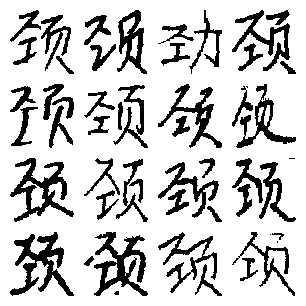 颈颈劲颈
颈颈颈颌
颈颈颈颈
颈颈颈颌